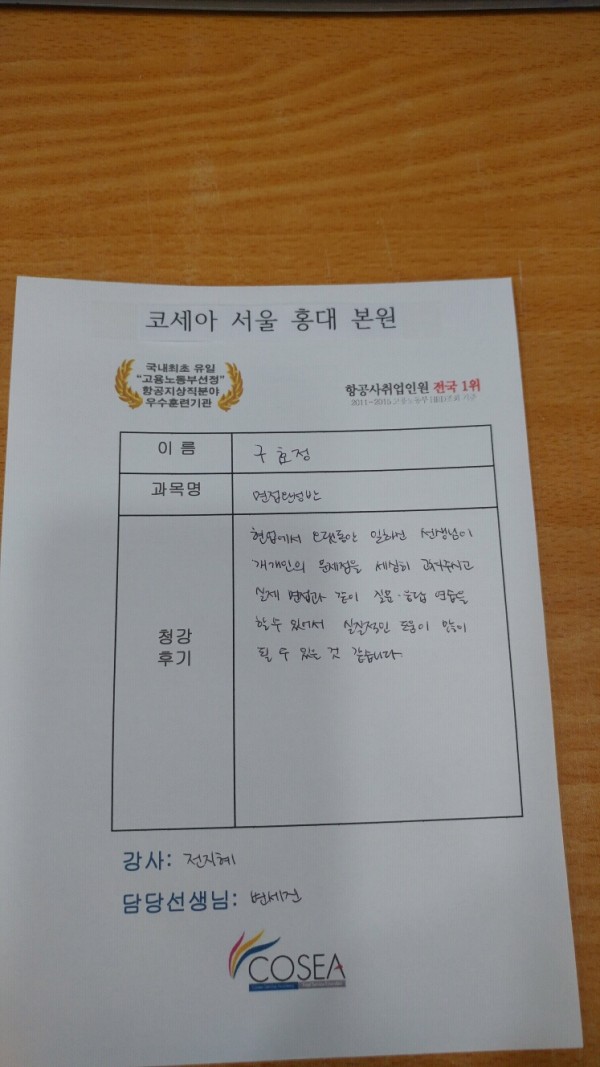 코세아 서울 홍대 본원
국내최초 유일
"고용노동부선정"
항공지상직분야
우수훈련기관
항공사취업인원 전국 1위
이 름
구효정
과목명
면접탄성반
현업에서 오랫동안 일하신 선생님이
개개인의 문제점을 세심히 고쳐주시고
실제 면접과 같이 질문·응답 연습을
할 수 있어서 실질적인 도움이 많이
될 수 있는 것 같습니다.
청강
후기
강사: 전지혜
담당선생님: 변세진
COSEA